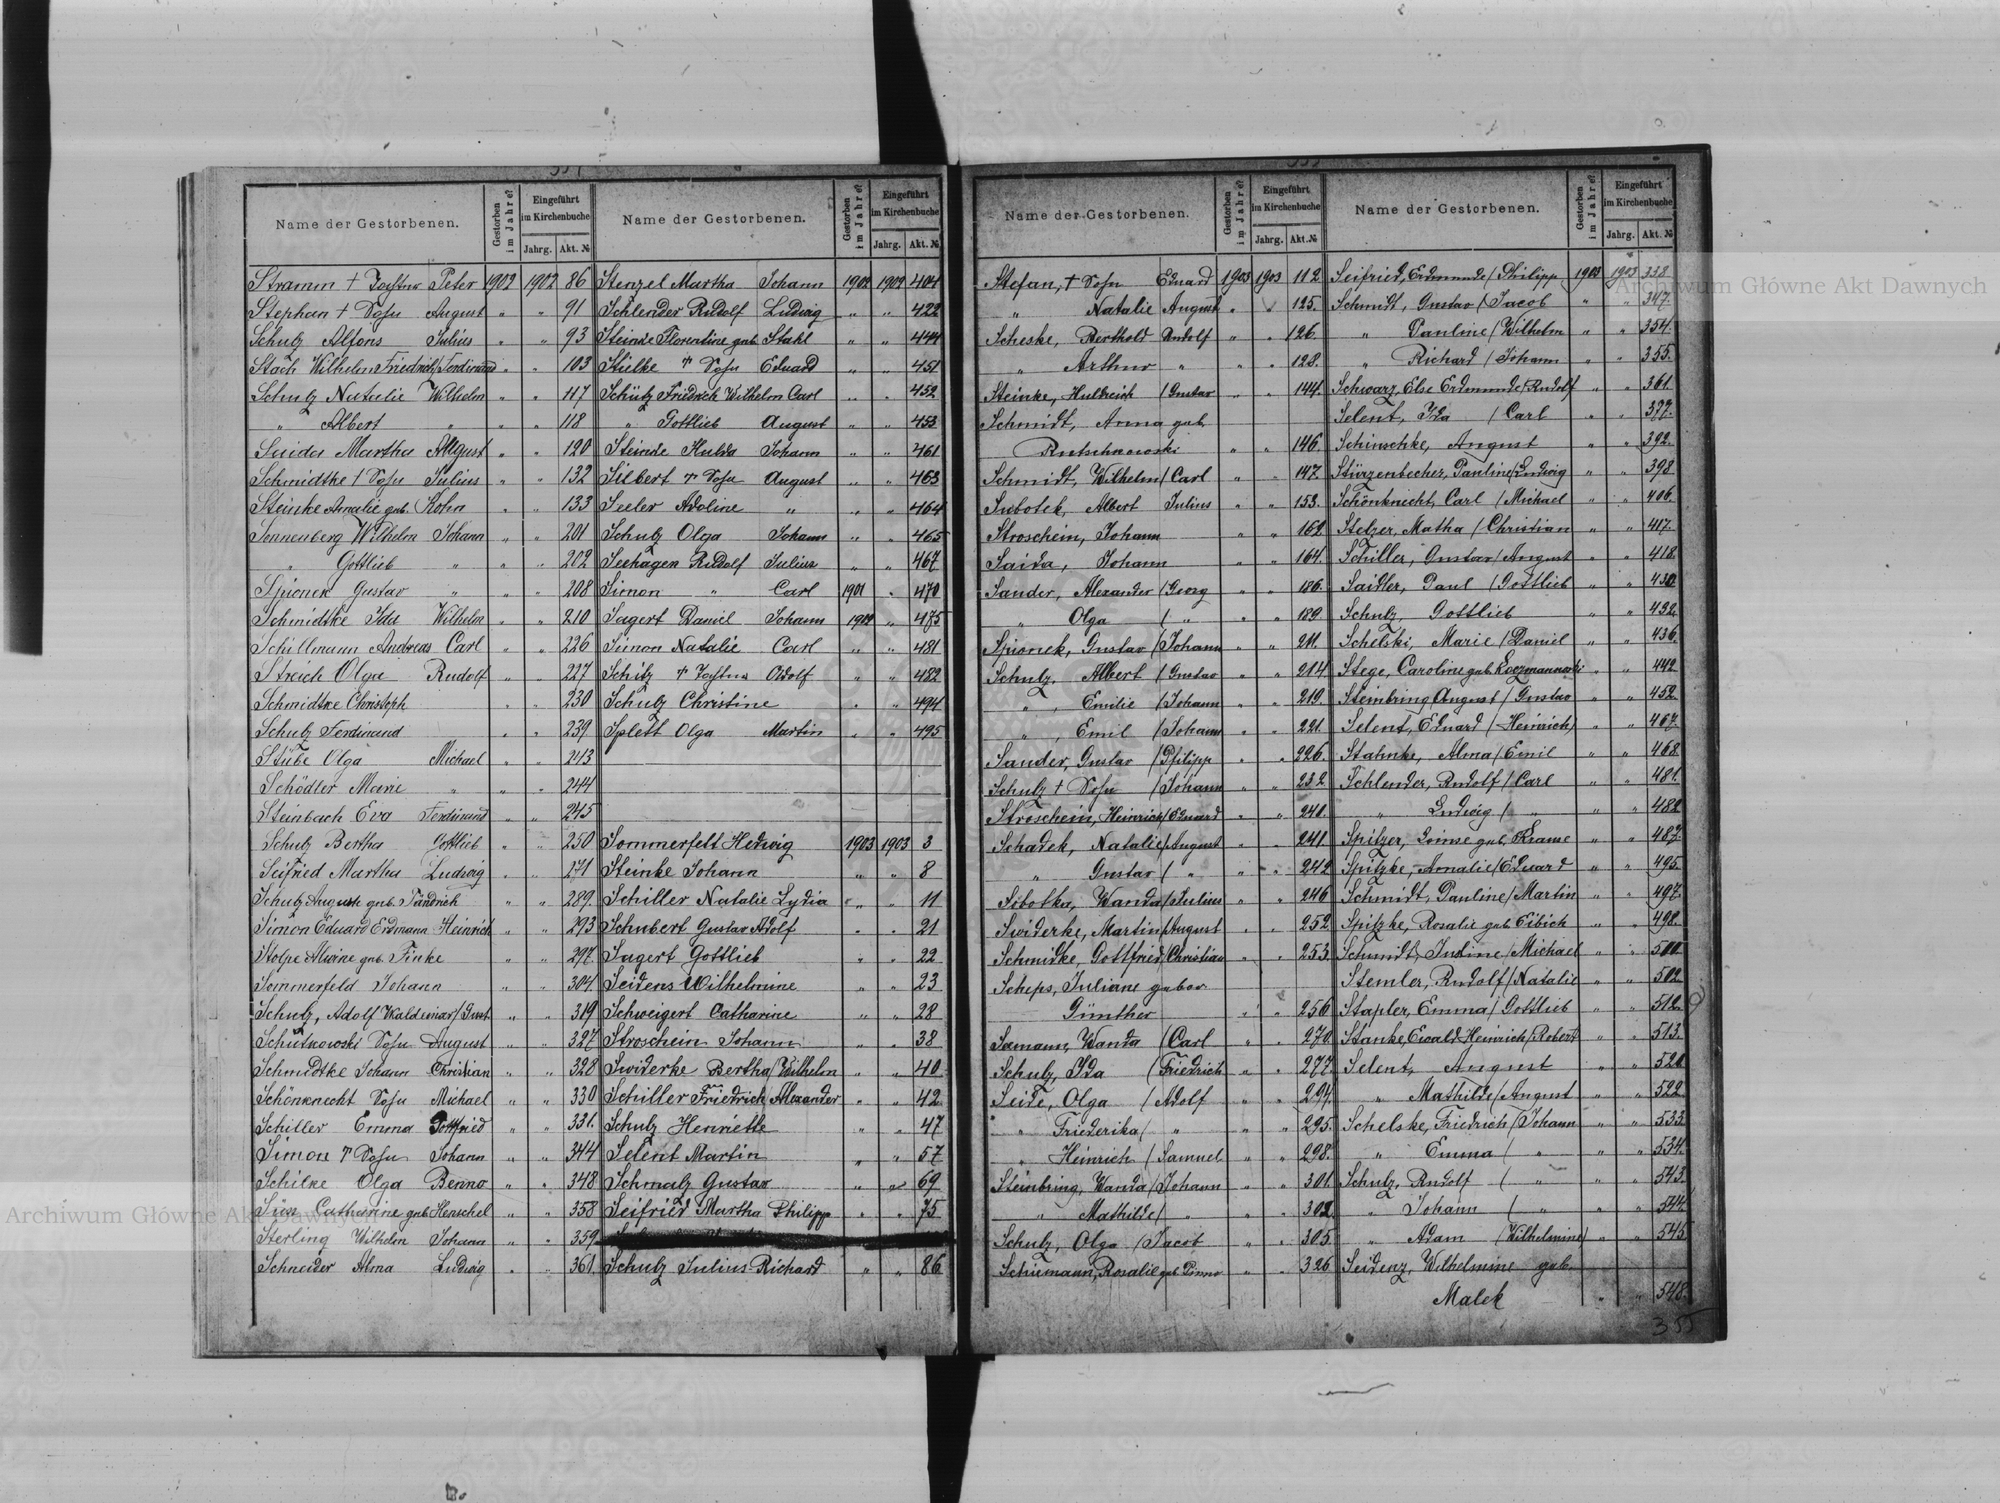 Name der Gestorbenen. Gestorben im Jahre? Eingeführt im Kirchenbuche Jahrg. Akt. №
Stramm † Tochter Peter 1902 1902 86
Stephan † Sohn August " " 91
Schulz Alfons Julius " " 93
Stach Wilhelm Friedrich/Ferdinand " " 103
Schulz Natalie Wilhelm " " 117
" Albert " " " 118
Saida Martha August " " 120
Schmidtke † Sohn Julius " " 132
Steinke Amalie geb. Kohn " " 133
Sonnenberg Wilhelm Johann " " 201
" Gottlieb " " " 202
Spionek Gustav " " " 208
Schmidtke Ida Wilhelm " " 210
Schillmann Andreas Carl " " 226
Streich Olga Rudolf " " 227
Schmidtke Christoph " " 230
Schulz Ferdinand " " 239
Stübe Olga Michael " " 243
Schödler Marie " " " 244
Steinbach Eva Ferdinand " " 245
Schulz Bertha Gottlieb " " 250
Seifried Martha Ludwig " " 271
Schulz Auguste geb. Fandrich " " 289
Simon Eduard Erdmann Heinrich " " 293
Stolpe Alwine geb. Finke " " 297
Sommerfeld Johann " " 304
Schulz, Adolf Waldemar/Gust. " " 319
Schutkowski Sohn August " " 327
Schmidtke Johann Christian " " 328
Schönknecht Sohn Michael " " 330
Schiller Emma Gottfried " " 331
Simon † Sohn Johann " " 344
Schilke Olga Benno " " 348
Süss Catharine geb. Henschel " " 358
Sterling Wilhelm Johann " " 359
Schneider Alma Ludwig " " 361
Name der Gestorbenen. Gestorben im Jahre? Eingeführt im Kirchenbuche Jahrg. Akt. №
Stenzel Martha Johann 1902 1902 404
Schlender Rudolf Ludwig " " 422
Steinde Florentine geb. Stahl " " 444
Stielke † Sohn Eduard " " 451
Schütz Friedrich Wilhelm Carl " " 452
" Gottlieb August " " 453
Steinde Hulda Johann " " 461
Silbert † Sohn August " " 463
Seeler Adoline " " " 464
Schulz Olga Johann " " 465
Seehagen Rudolf Julius " " 467
Simon " Carl 1901 " 470
Sagert Daniel Johann 1902 " 475
Simon Natalie Carl " " 481
Schütz † Tochter Adolf " " 482
Schulz Christine " " 494
Splett Olga Martin " " 495
Sommerfelt Hedwig 1903 1903 3
Steinke Johann " " 8
Schiller Natalie Lydia " " 11
Schubert Gustav Adolf " " 21
Sagert Gottlieb " " 22
Seidens Wilhelmine " " 23
Schweigert Catharine " " 28
Stroschein Johann " " 38
Swiderke Bertha/Wilhelm " " 40
Schiller Friedrich/Alexander " " 42
Schulz Henriette " " 47
Selent Martin " " 57
Schmalz Gustav " " 69
Seifried Martha Philipp " " 75
Schulz Julius Richard " " 86
Name der Gestorbenen. Gestorben im Jahre? Eingeführt im Kirchenbuche Jahrg. Akt. №
Stefan, † Sohn Eduard 1903 1903 112
" Natalie August " " 125.
Scheske, Berthold Rudolf " " 126.
" Arthur " " " 128.
Steinke, Huldreich / Gustav " " 144.
Schmidt, Anna geb.
Rutschkowski " " 146.
Schmidt, Wilhelm/Carl " " 147.
Subotek, Albert Julius " " 153.
Stroschein, Johann " " 162.
Saida, Johann " " 164.
Sander, Alexander/Georg " " 186.
" Olga / " " " 189.
Spionek, Gustav /Johann " " 211.
Schulz, Albert /Gustav " " 214
" , Emilie /Johann " " 219.
" , Emil /Johann " " 221.
Sander, Gustav /Philipp " " 226.
Schulz † Sohn /Johann " " 232.
Stroschein, Heinrich/Eduard " " 240.
Schadek, Natalie/August " " 241.
" Gustav / " " " 242
Sobotka, Wanda/Julius " " 246
Swiderke, Martin/August " " 252
Schmidke, Gottfried/Christian " " 253
Scheps, Juliane gebor.
Günther " " 256
Samann, Wanda /Carl " " 270.
Schulz, Ida /Friedrich " " 277.
Seide, Olga /Adolf " " 294.
" Friederika/ " " " 295.
" Heinrich /Samuel " " 298.
Steinbring, Wanda/Johann " " 301
" Mathilde/ " " " 302
Schulz, Olga /Jacob " " 305
Schiemann, Rosalie geb. Penno " " 326
Name der Gestorbenen. Gestorben im Jahre? Eingeführt im Kirchenbuche Jahrg. Akt. №
Seifried, Erdmunde/Philipp 1903 1903 338
Schmidt, Gustav /Jacob " " 347.
" Pauline/Wilhelm " " 354.
" Richard /Johann " " 355.
Schwarz, Else Erdmunde/Rudolf " " 361.
Selent, Ida /Carl " " 377.
Schinschke, August " " 392.
Stürzenbecher, Pauline/Ludwig " " 398
Schönknecht, Carl /Michael " " 406.
Stelzer, Matha /Christian " " 417.
Schiller, Gustav/August " " 418.
Saidler, Paul /Gottlieb " " 430
Schulz, Gottlieb " " 432
Schelski, Marie /Daniel " " 436.
Stege, Caroline geb. " " 442
Steinbring, August /Gustav " " 452.
Selent, Eduard /Heinrich/ " " 467.
Stahnke, Alma/Emil " " 468.
Schlender, Rudolf/Carl " " 481.
" Ludwig / " " " 482
Spitzer, geb. Krame " " 487.
Spitzke, Amalie/Eduard " " 495.
Schmidt, Pauline/Martin " " 497.
Spitzke, Rosalie geb. Eibich " " 498.
Schmidt, Justine/Michael " " 500.
Stemler, Rudolf/Natalie " " 502.
Stapler, Emma/Gottlieb " " 512.
Stanke, Ewald Heinrich/Robert " " 513.
Selent, August " " 520
" Mathilde/August " " 522.
Schelske, Friedrich /Johann " " 533.
" Emma / " " " 534.
Schulz, Rudolf / " " " 543.
" Johann / " " " 544
" Adam /Wilhelmine/ " " 545
Seidenz, Wilhelmine geb.
Malek " " 548.
355
Archiwum Główne Akt Dawnych
Archiwum Główne Akt Dawnych